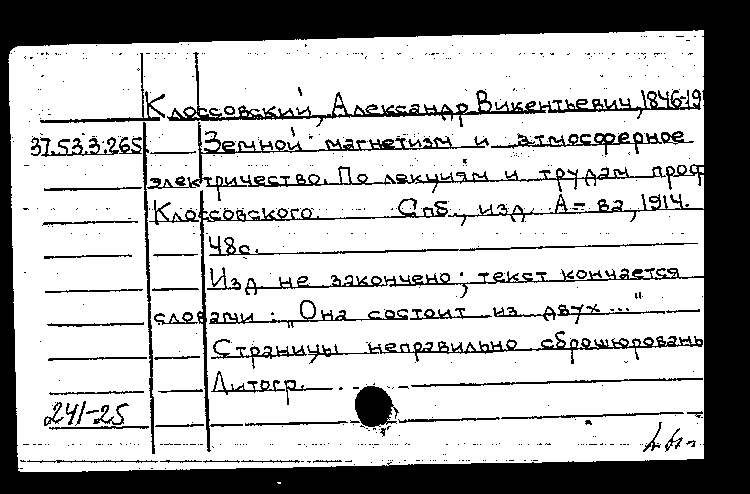 Клоссовский, Александр Викентьевич, 1846-19
37.53.3:265. Земной магнетизм и атмосферное
электричество. По лекциям и трудам проф
Клоссовского. Спб., изд. А-ва, 1914.
48с.
Изд не закончено; текст кончается
словами: "Она состоит из двух..."
Страницы неправильно сброшюрованы
Литогр.
241-25